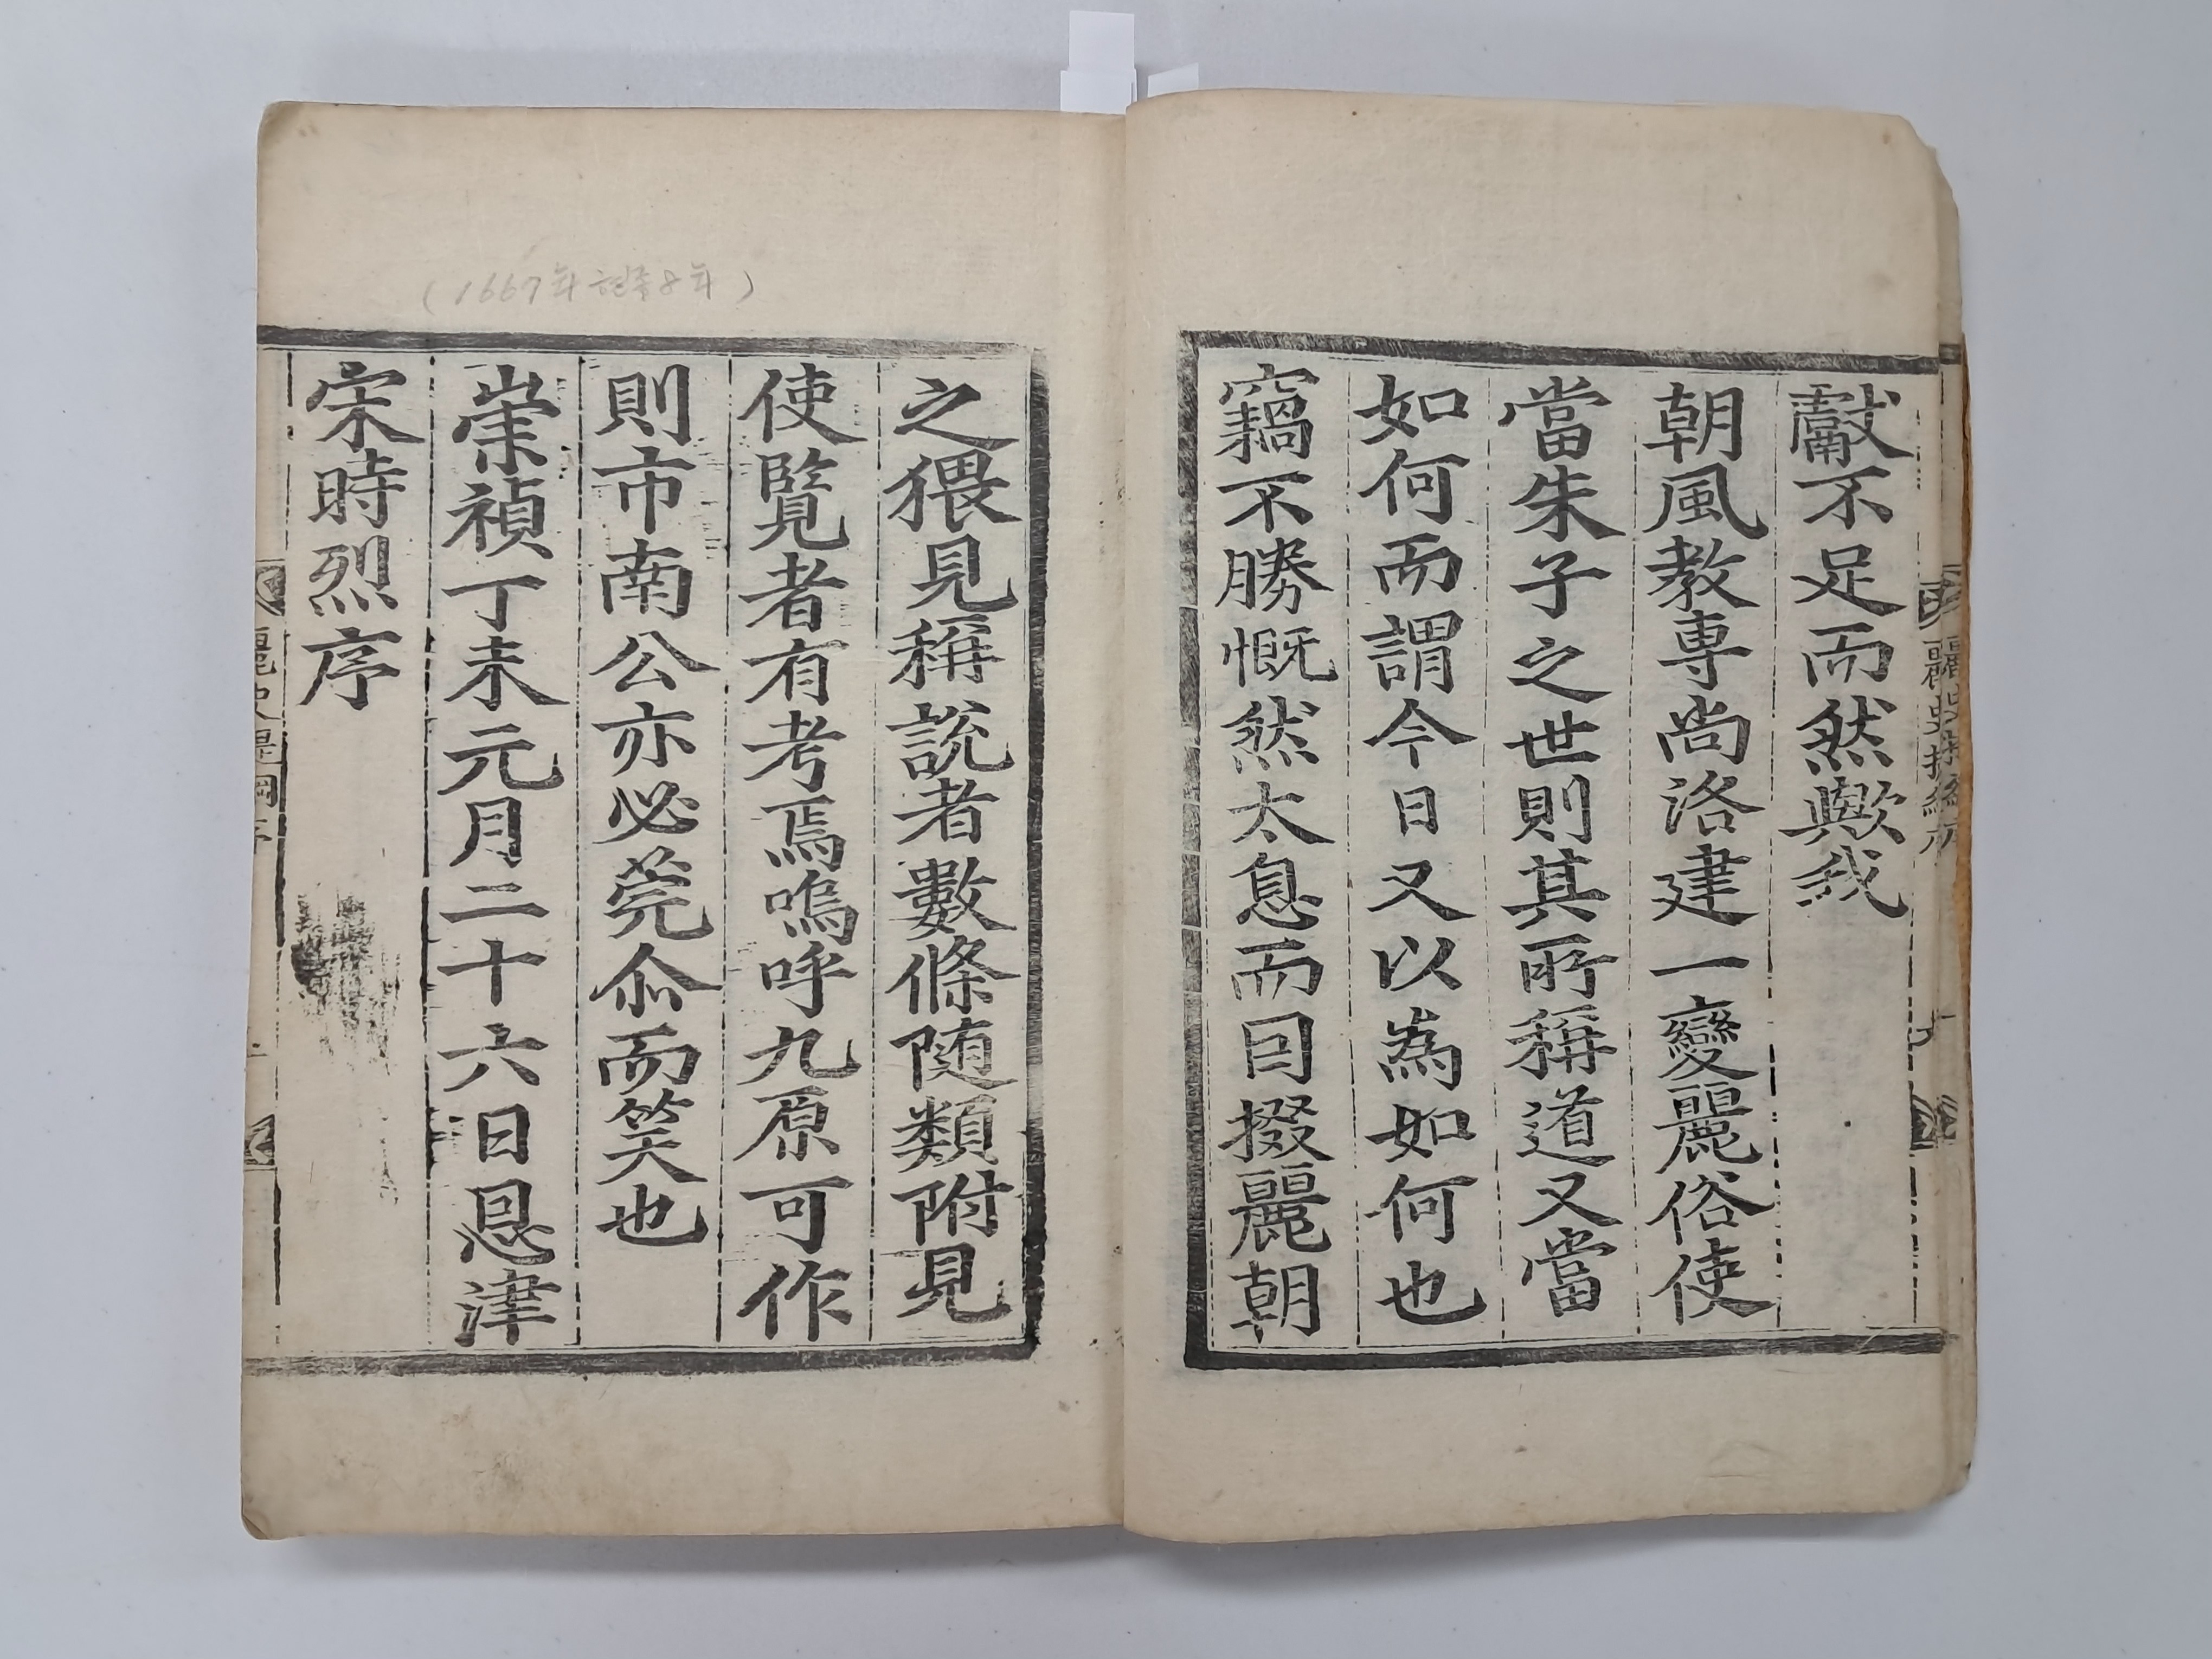 獻不足而然歟我
朝風教專尚洛建一變麗俗使
當朱子之世則其所稱道又當
如何而謂今日又以為如何也
竊不勝慨然太息而因掇麗朝
之猥見稱說者數條随類附見
使覽者有考焉嗚呼九原可作
則市南公亦必莞尒而笑也
崇禎丁未元月二十六日恩津
宋時烈序
(1667年 현종8年)
麗史提綱序